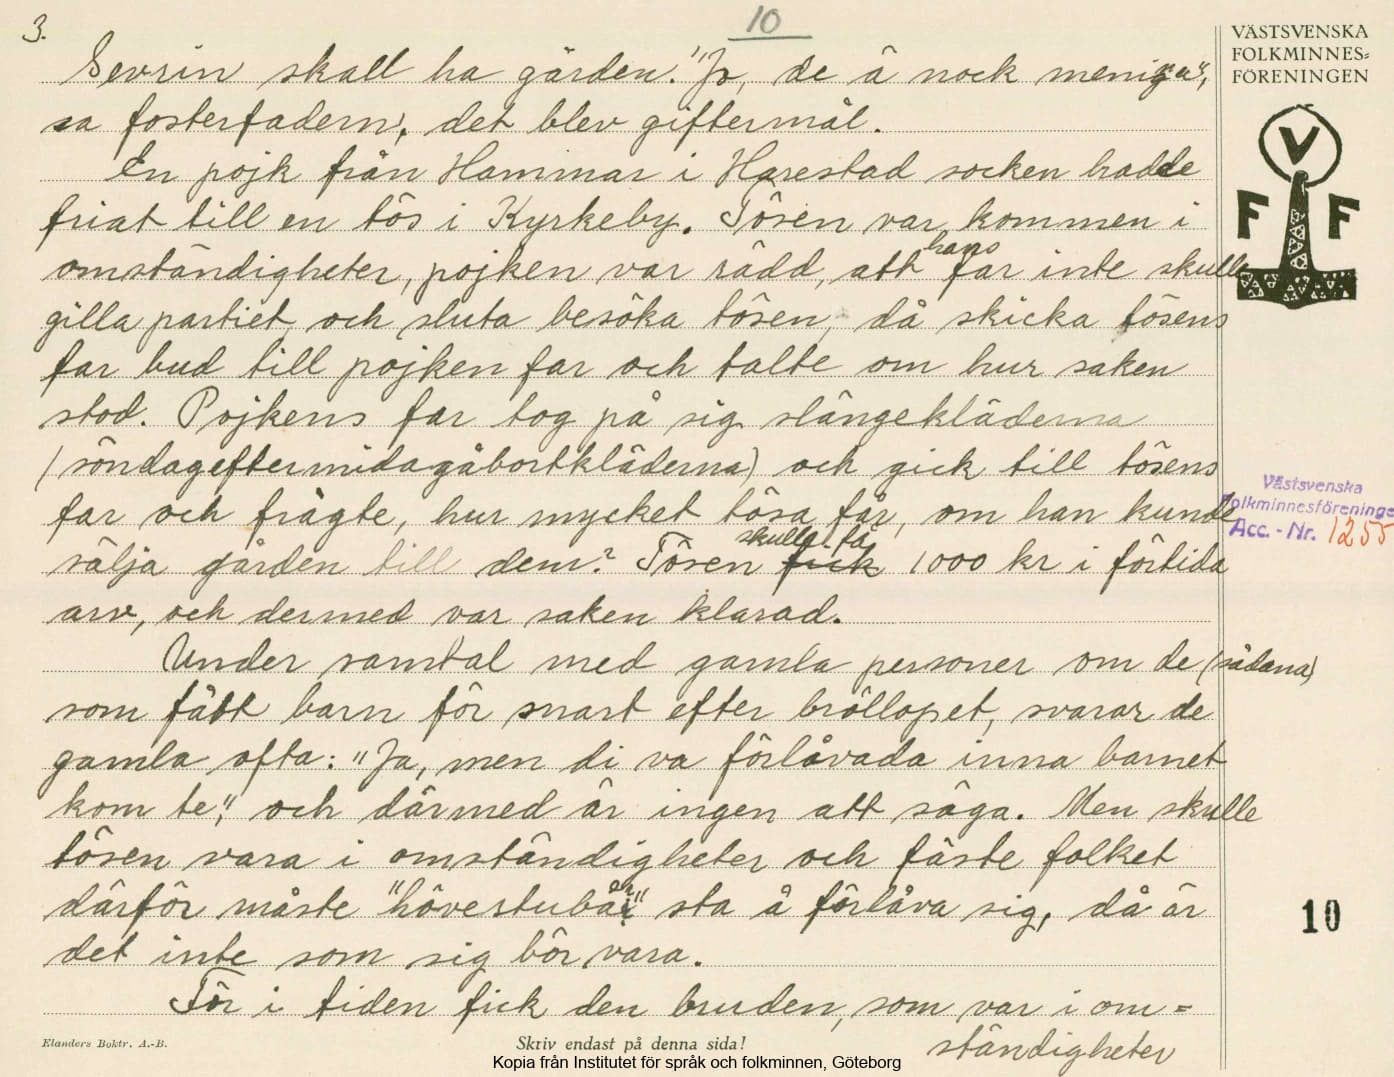 3.
10
Sevrin skall ha gården." "Jo, de â nock meninga",
sa fosterfadern, det blev giftermål.
En pojk från Hammar i Harestad socken hadde
friat till en tös i Kyrkeby. Tösen var kommen i
omständigheter, pojken var rädd, att hans far inte skulle
gilla partiet och sluta besöka tösen, då skicka tösens
far bud till pojken far och talte om hur saken
stod. Pojkens far tog på sig slängekläderna
(söndageftermidagåbortkläderna) och gick till tösens
far och frågte, hur mycket tösa får, om han kunde
sälja gården till dem? Tösen fick skulle få 1000 kr i förtida
arv, och dermed var saken klarad.
Under samtal med gamla personer om de (sådana)
som fått barn för snart efter bröllopet, svarar de
gamla ofta: "Ja, men di va förlåvada inna barnet
kom te", och därmed är ingen att säga. Men skulle
tösen vara i omständigheter och fäste folket
därför måste "hövestubår" sta å förlåva sig, då är
det inte som sig bör vara.
För i tiden fick den bruden, som var i om=
ständigheter
VÄSTSVENSKA
FOLKMINNES=
FÖRENINGEN
V
F F
Västsvenska
Folkminnesföreningen
Acc. - Nr. 1255
10
Elanders Boktr. A.-B.
Skriv endast på denna sida!
Kopia från Institutet för språk och folkminnen, Göteborg